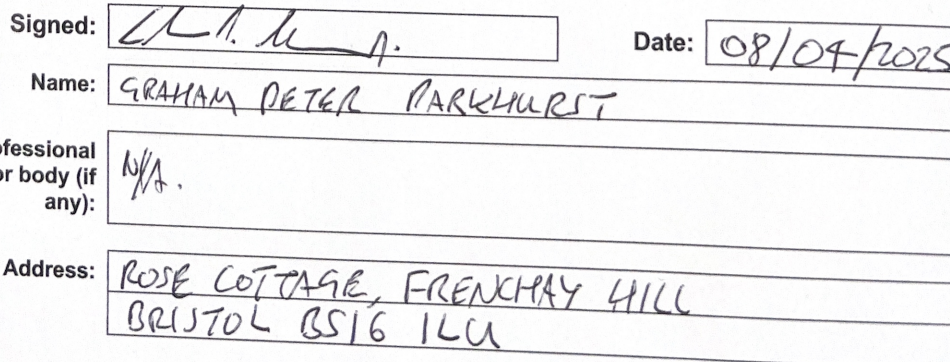 Signed:
Date: 08/04/2025
Name: GRAHAM PETER PARKHURST
ofessional
or body (if
any): N/A.
Address: ROSE COTTAGE, FRENCHAY HILL
BRISTOL BS16 1LU